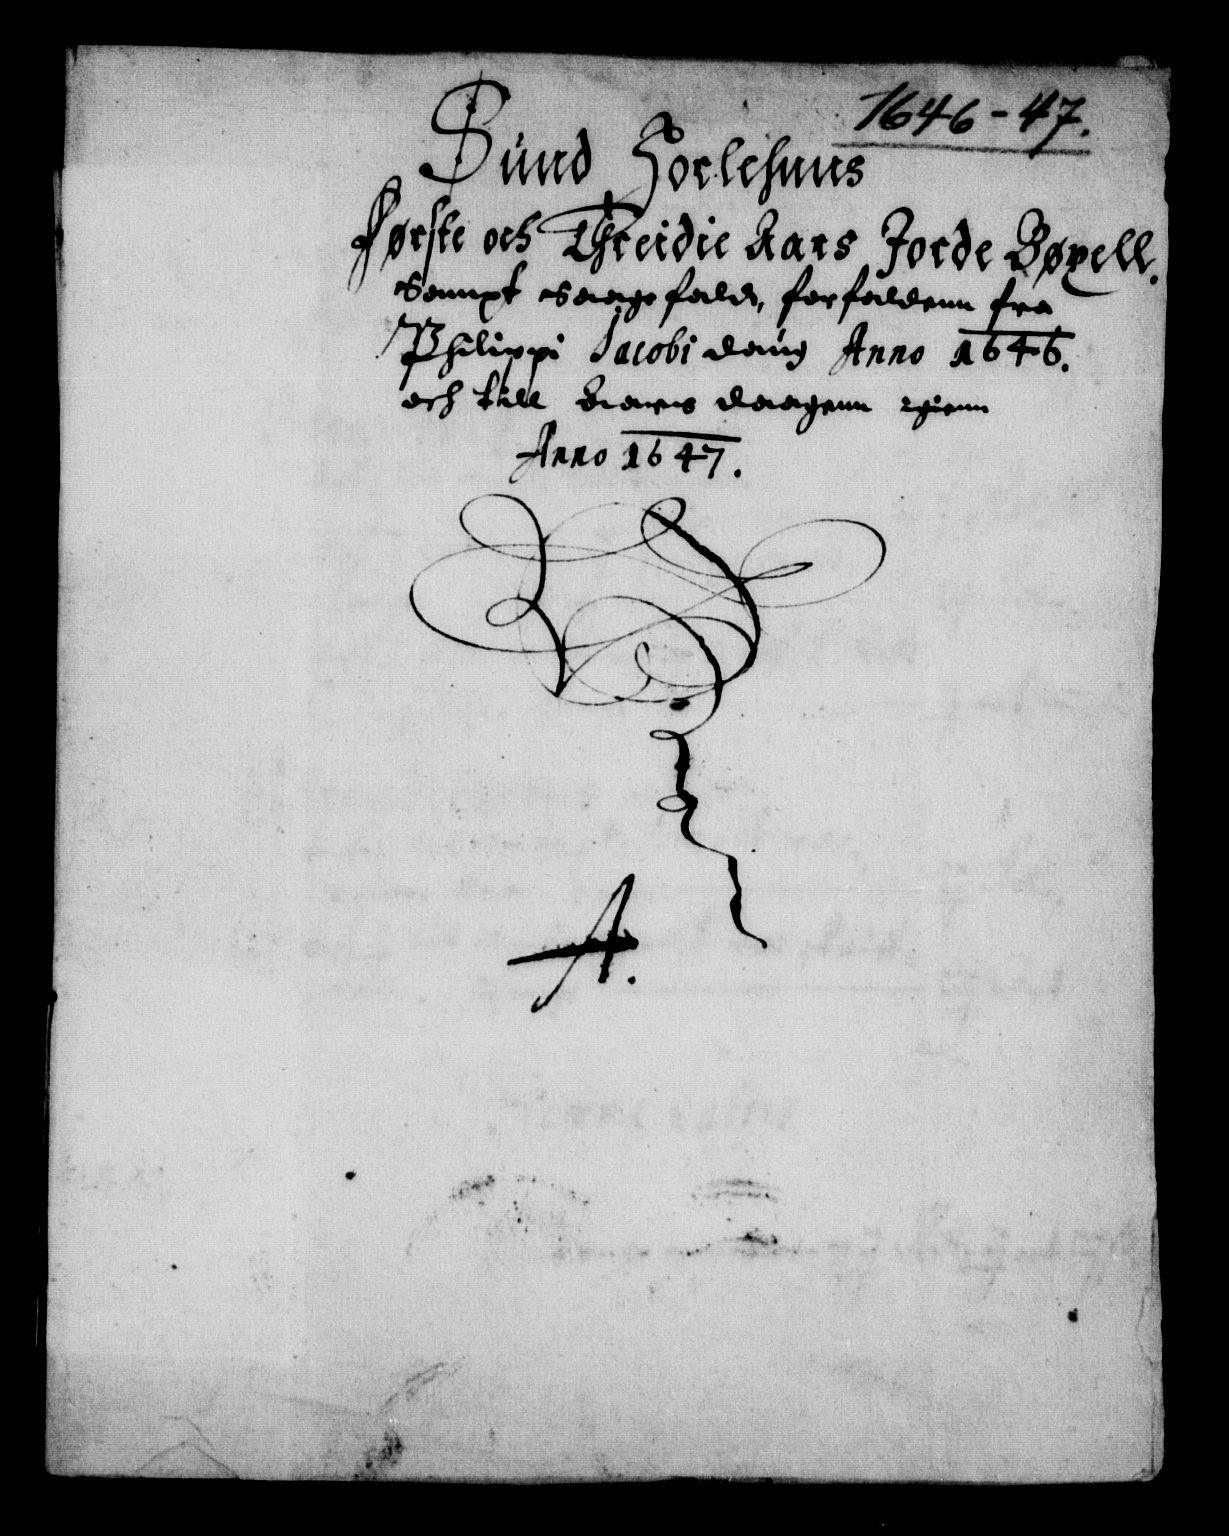 1646-47.
Sünd Horlehnns
Første och Threidie Aars Jorde Bøxell.
Sampt Saagefald, forfaldenn fra
Philippi Jacobi daug Anno 1646.
och till Aarss daagenn igienn
Anno 1647.
A.